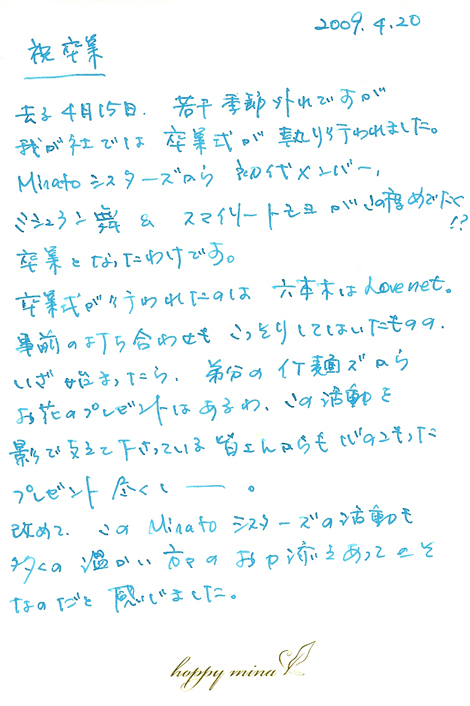 2009.4.20
祝 卒業
去る4月15日、若干季節外れですが
我が社では卒業式が執り行われました。
Minatoシスターズから初代メンバー、
ミシュラン舞 & スマイリートモヨがこの度めでたく!?
卒業となったわけです。
卒業式が行われたのは 六本木はLovenet。
事前の打ち合わせも こっそりしてはいたものの、
いざ始まったら、弟分のイケ麺ズから
お花のプレゼントはあるわ、この活動を
影で支えて下さっている皆さんからも心のこもった
プレゼント尽くし——。
改めて、この Minatoシスターズの活動も
多くの温かい方々のお力添えあってこそ
なのだと感じました。
happy mina